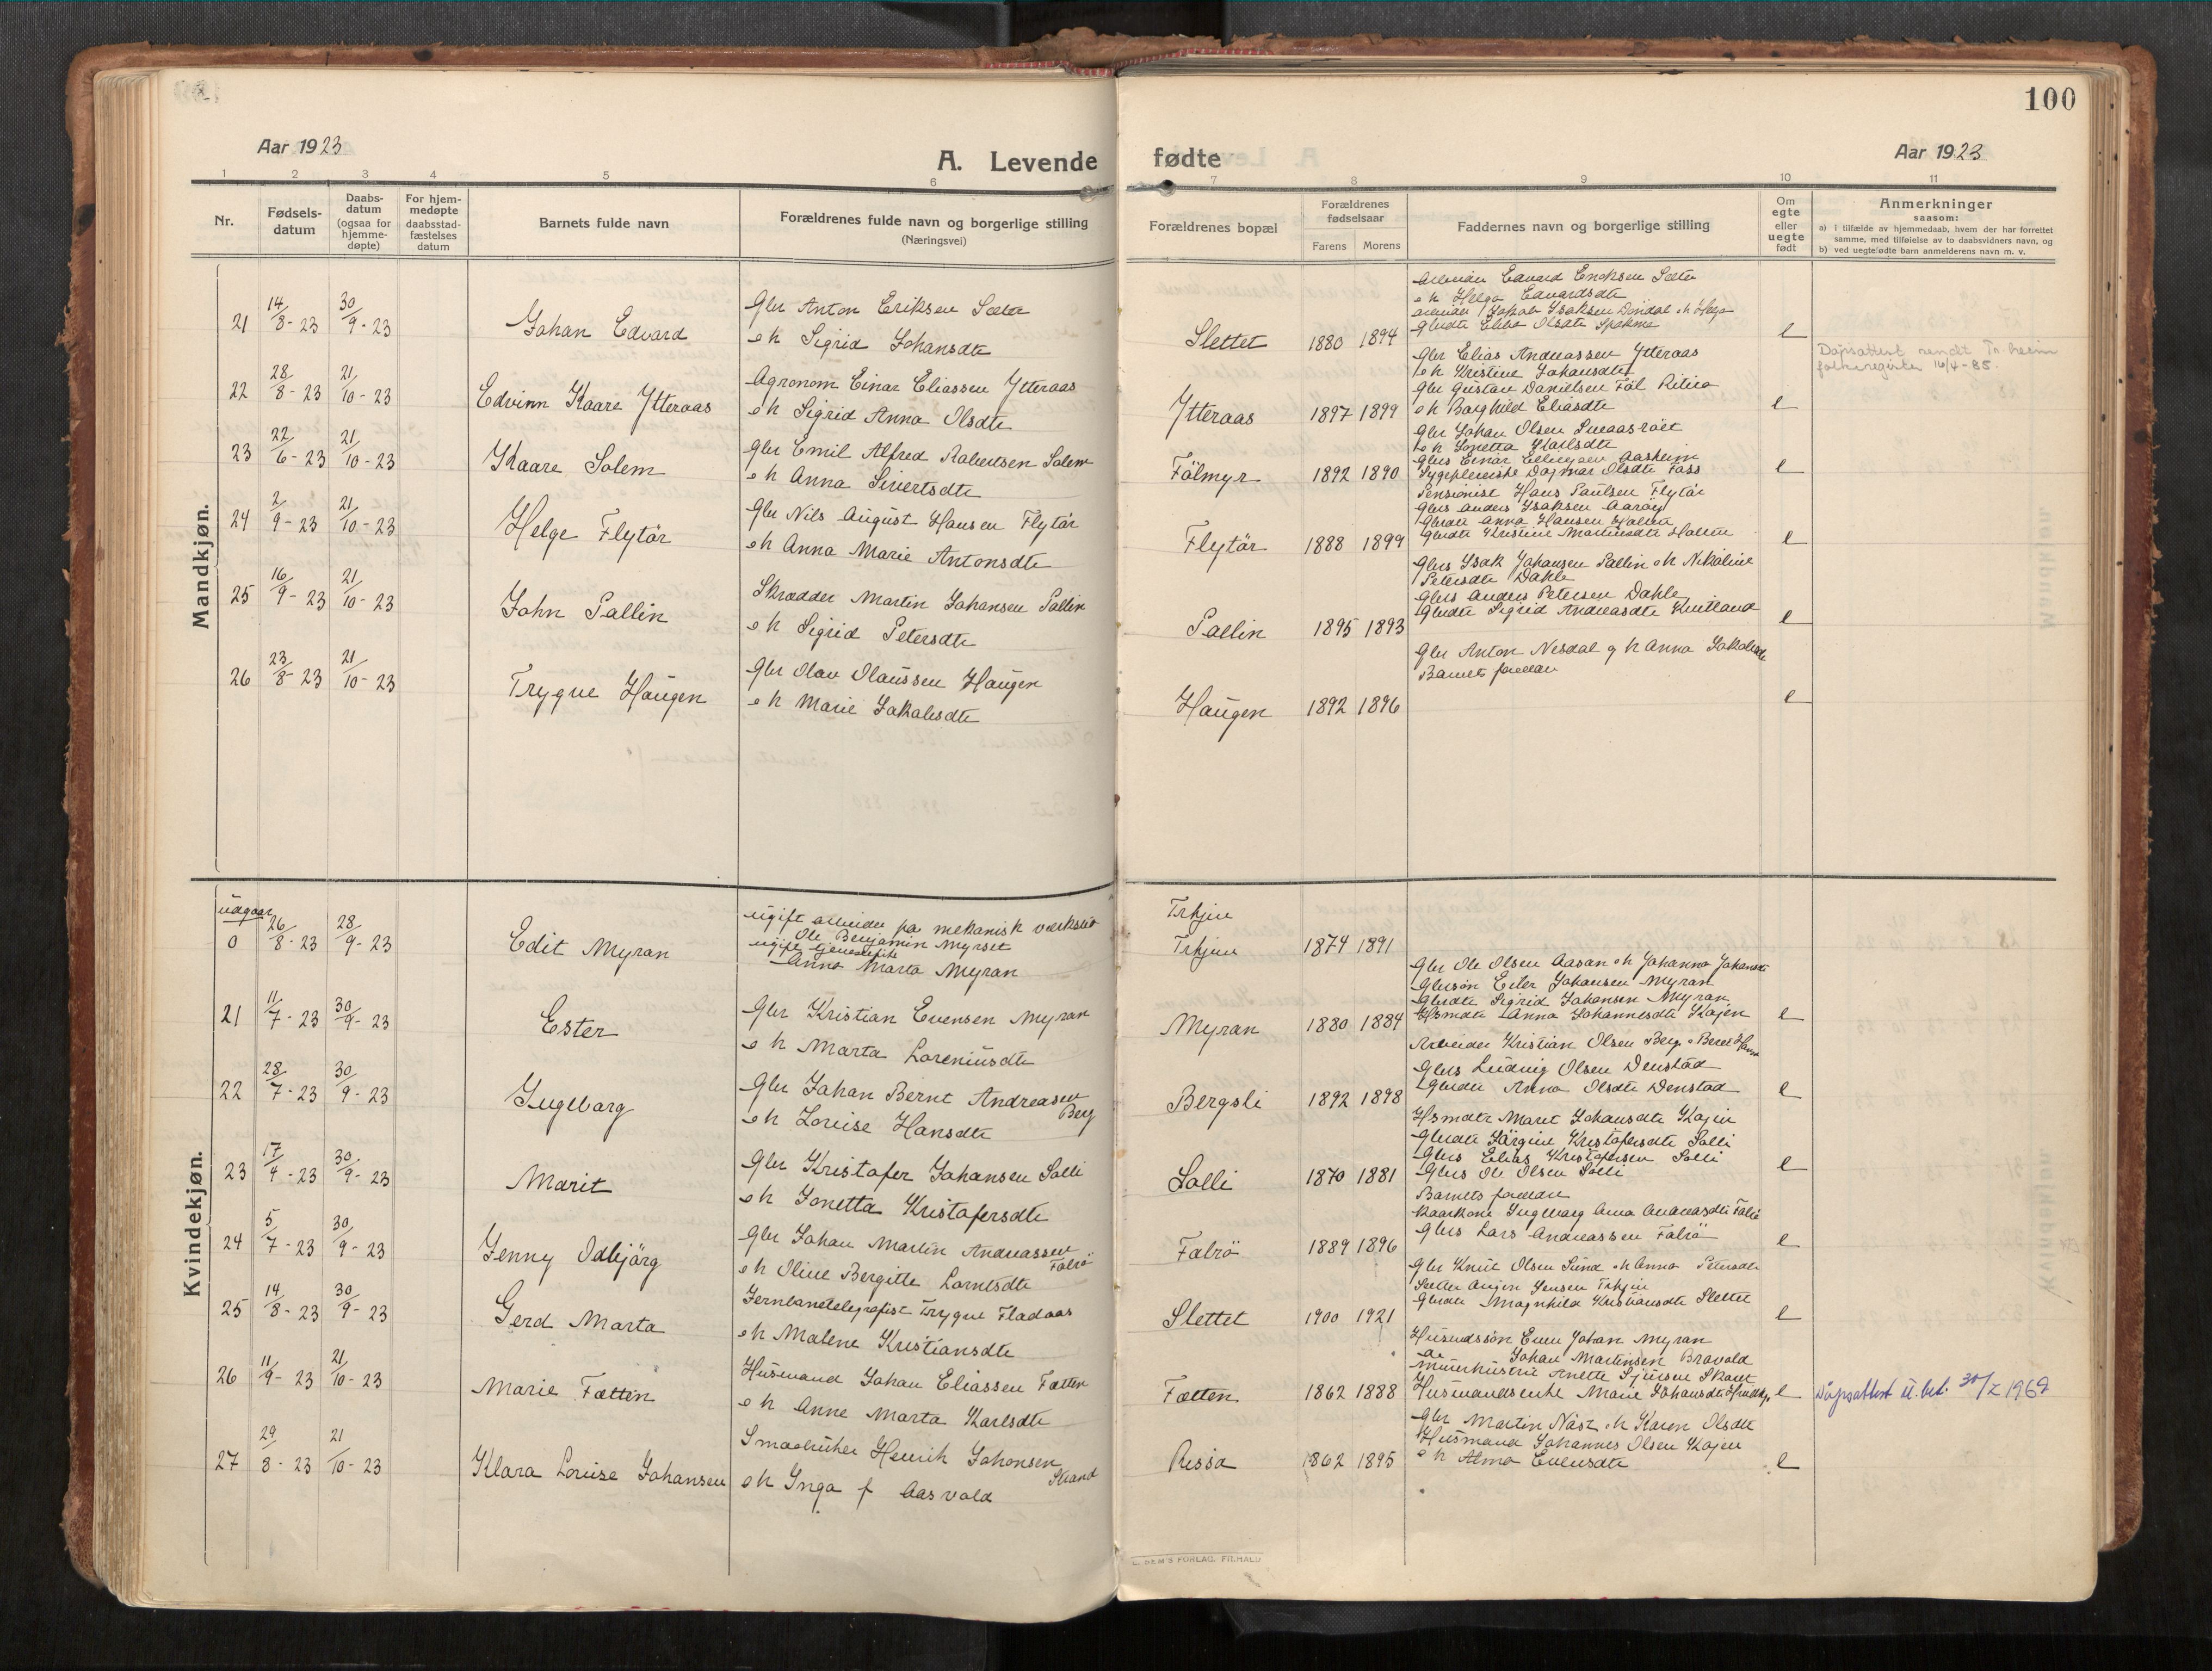 100
Aar 1923
A. Levende
fødte
Aar 1923
1 2 3 4 5 6
7 8 9 10 11
Nr.
Fødsels-
datum
Daabs-
datum
(ogsaa for
hjemme-
døpte)
For hjem-
medøpte
daabsstad-
fæstelses
datum
Barnets fulde navn
Forældrenes fulde navn og borgerlige stilling
(Næringsvei)
Forældrenes bopæl
Forældrenes
fødselsaar
Farens
Morens
Faddernes navn og borgerlige stilling
Om
egte
eller
uegte
født
Anmerkninger
saasom:
a) i tilfælde av hjemmedaab, hvem der har forrettet
samme, med tilføielse av to daabsvidners navn, og
b) ved uegtefødte barn anmelderens navn m. v.
Mandkjøn.
21 14/8-23 30/9-23 Johan Edvard
Gbr Anton Eriksen Sæter
o h Sigrid Johansdtr
Slettet 1880 1894
Edvard Eriksen Sæter
o h Helga Edvardsdtr
e
22 28/8-23 21/10-23 Edvinn Kaare Ytteraas
Agronom Einar Eliassen Ytteraas
o h Sigrid Anna Olsdtr
Ytteraas 1897 1899
Gbr Elias Andreassen Ytteraas
o h Kristine Johansdtr
Gbr Gustav Danielsen Føl
o h Borghild Eliasdtr
e
Dåpsattest sendt Tr.heim
folkeregister 16/4-85.
23 22/6-23 21/10-23 Kaare Solem
Gbr Emil Alfred Robertsen Solem
o h Anna Sivertsdtr
Fölmyr 1892 1890
Gbr Johan Olsen
o h Jonetta Karlsdtr
Gbrs Einar Ellingsen Aasheim
Sygepleierske Dagmar Olsdtr Foss
e
24 2/9-23 21/10-23 Helge Flytör
Gbr Nils August Hansen Flytör
o h Anna Marie Antonsdtr
Flytör 1888 1899
Pensionist Hans Paulsen Flytör
Gbrs Anders Isaksen Aaröy
Gbrdtr Anna Hansen
Gbrdtr Kristine Martinsdtr
e
25 16/9-23 21/10-23 John Sallin
Skrædder Martin Johansen Sallin
o h Sigrid Petersdtr
Sallin 1895 1893
Gbrs Isak Johansen Sallin o h Nikoline
Petersdtr Dahle
Gbrs Anders Petersen Dahle
Gbrdtr Sigrid Andreasdtr
e
26 23/8-23 21/10-23 Trygve Haugen
Gbr Olav Olaussen Haugen
o h Marie Jakobsdtr
Haugen 1892 1896
Gbr Anton Nesdal o h Anna Jakobsdtr
Barnets foreldre
e
Kvindekjøn.
udgaar
0 26/8-23 28/9-23 Edit Myran
ugift arbeider på mekanisk værksted
Ole Benjamin Myrset
ugift tjenestepike
Anna Marta Myran
Trhjem
Trhjem 1874 1891
21 11/7-23 30/9-23 Ester
Gbr Kristian Evensen Myran
o h Marta Loreniusdtr
Myran 1880 1884
Gbr Ole Olsen Aasan o h Johanna Johansdtr
Gbrsön Eiler Johansen Myran
Gbrdtr Sigrid Johansen Myran
Hsmdtr Anna Johannesdtr Kojen
e
22 28/7-23 30/9-23 Ingeborg
Gbr Johan Bernt Andreasen
Berg
o h Lovise Hansdtr
Bergsli 1892 1898
Arbeider Kristian Olsen Berg o Beret
Gbrs Ludvig Olsen Denstad
Gbrdtr Anna Olsdtr Denstad
e
23 17/4-23 30/9-23 Marit
Gbr Kristofer Johansen Solli
o h Jonetta Kristofersdtr
Solli 1870 1881
Hsmdtr Marit Johansdtr Kojen
Gbrdtr Jörgine Kristofersdtr Solli
Gbrs Elias Kristofersen Solli
Gbrs Ole Olsen Solli
e
24 5/7-23 30/9-23 Jenny Odbjörg
Gbr Johan Martin Andreassen
Falrö
o h Oline Bergitte Lorntsdtr
Falrö 1889 1896
Barnets foreldre
Kaarkone Ingeborg Anna Andreasdtr Falrö
Gbrs Lars Andreassen Falrö
e
25 14/8-23 30/9-23 Gerd Marta
Jernbanetelegrafist Trygve Fladaas
o h Malene Kristiansdtr
Slettet 1900 1921
Gbr Knut Olsen Sund o h Anna Petersdtr
Jensen Trhjem
Gbrdtr Magnhild Kristiansdtr Slettet
e
26 11/9-23 21/10-23 Marie Fætten
Husmand Johan Eliassen Fætten
o h Anne Marta Karlsdtr
Fætten 1862 1888
Husmandssön Even Johan Myran
do Johan Martinsen Bravold
Murerhustru Anette
Husmandsenke Marie Johansdtr
e
Dåpsattest u. bet. 30/7 1969
27 29/8-23 21/10-23 Klara Lovise Johansen
Smaabruker Henrik Johansen
Strand
o h Inga f Aasvold
Rissa 1862 1895
Gbr Martin Näst o h Karen Olsdtr
Husmand Johannes Olsen Kojen
o h Alma Evensdtr
e